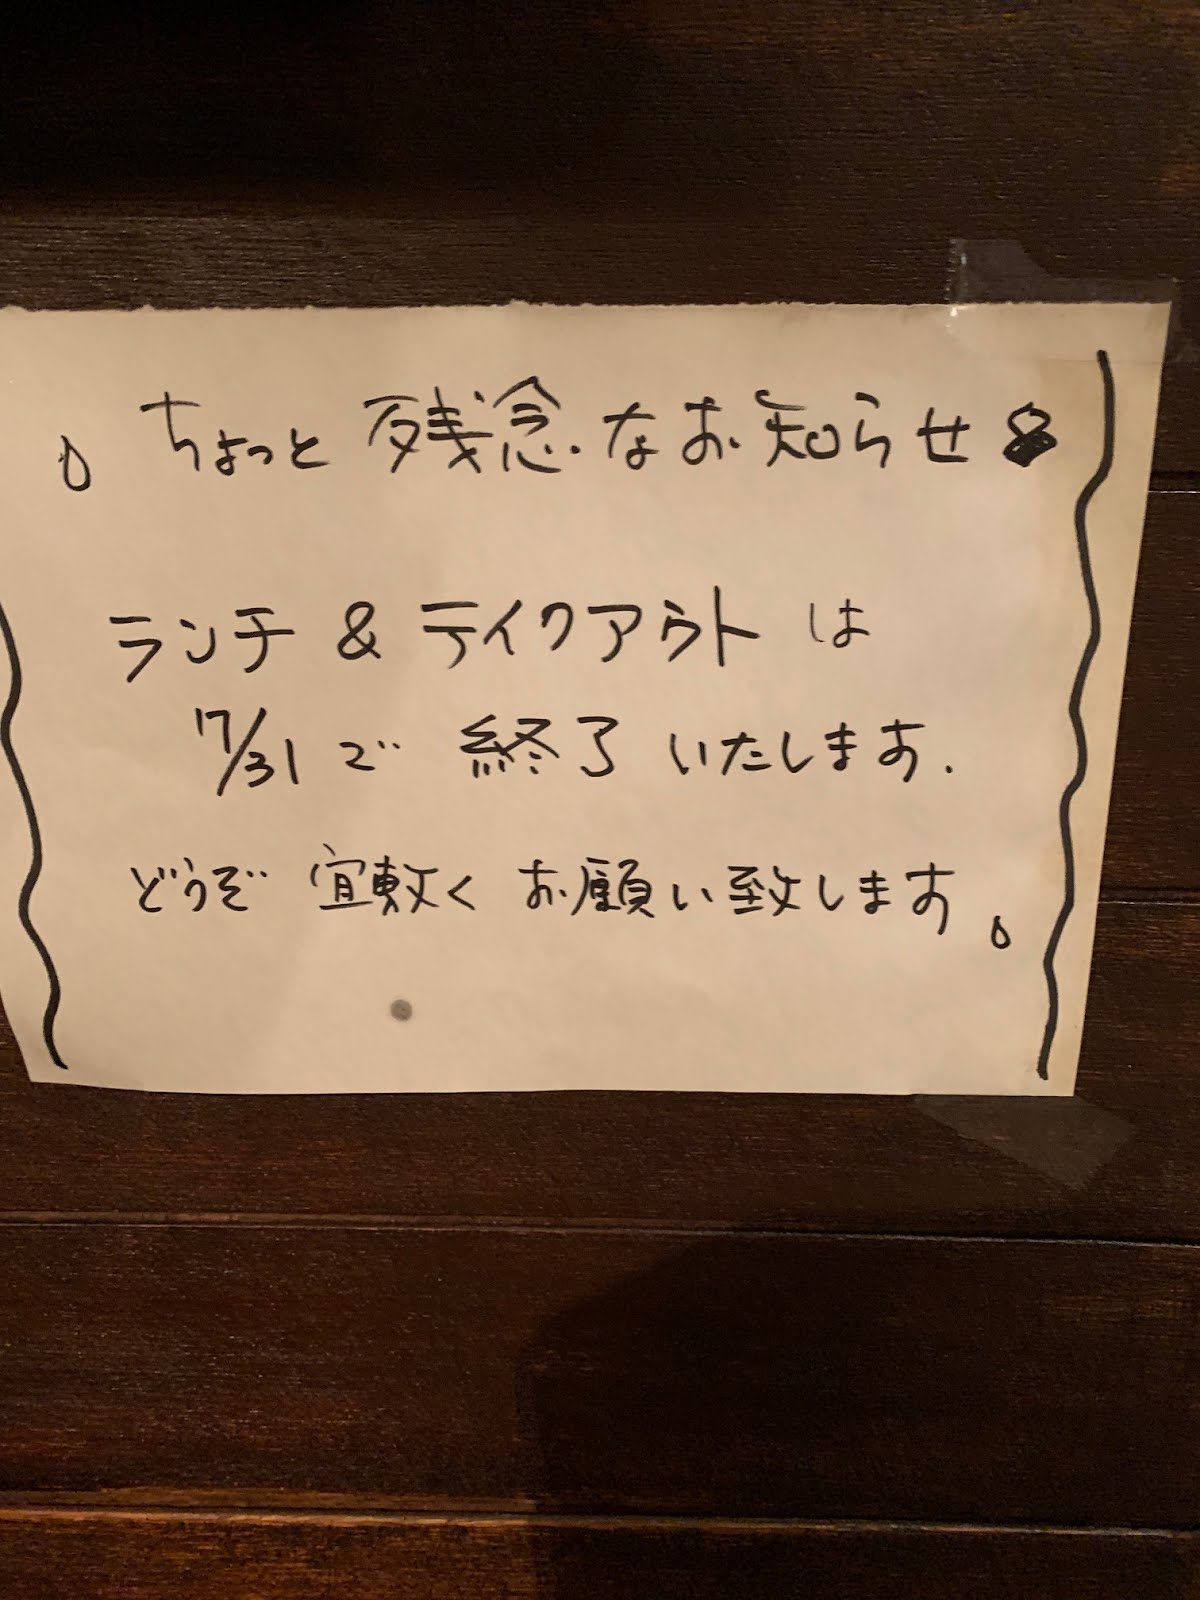 ちょっと残念なお知らせ
ランチ & テイクアウト は
7/31で 終了 いたします.
どうぞ 宜敷く お願い致します。